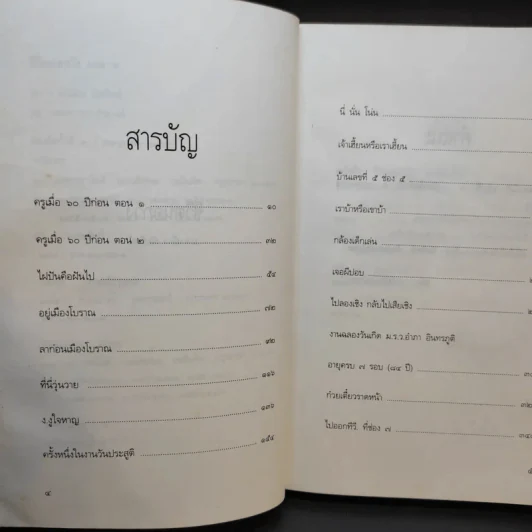 สารบัญ
ครูเมื่อ ๖๐ ปีก่อน ตอน ๑ ๑๐
ครูเมื่อ ๖๐ ปีก่อน ตอน ๒ ๓๒
ไฝปันคือฝันไป ๕๔
อยู่เมืองโบราณ ๗๒
ลาก่อนเมืองโบราณ ๙๒
ที่นี่วุ่นวาย ๑๑๖
ง.งูใจหาญ ๑๓๖
ครั้งหนึ่งในงานวันประสูติ ๑๕๔
๔
นี่ นั่น โน่น
เจ้าเฮี้ยนหรือเราเฮี้ยน
บ้านเลขที่ ๕ ช่อง ๕
เราบ้าหรือเขาบ้า
กล้องเด็กเล่น
เจอผีปอบ
ไปลองเชิง กลับไปเสียเชิง
งานฉลองวันเกิด ม.ร.ว.อำภา อินทรภูติ
อายุครบ ๗ รอบ (๘๔ ปี)
ก๋วยเตี๋ยวราดหน้า
ไปออกทีวี. ที่ช่อง ๗